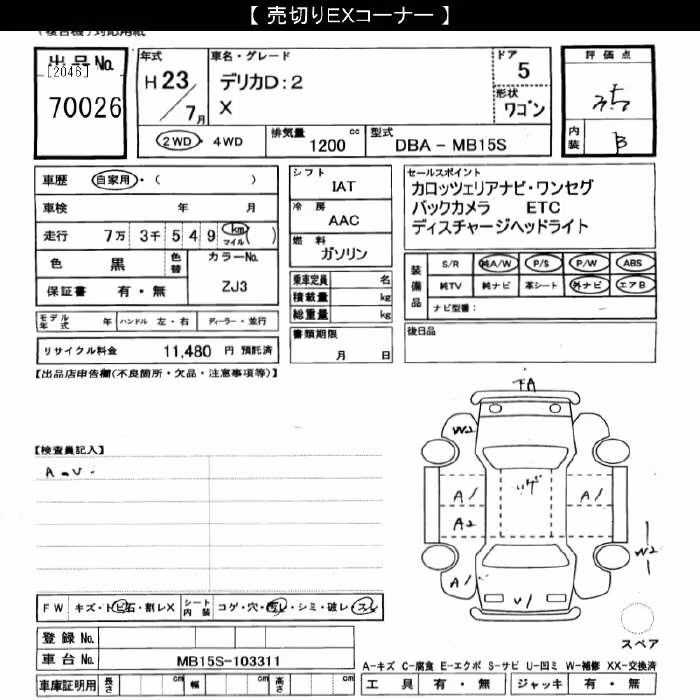 【 売切りEXコーナー 】
出品No.
[2046]
70026
年式
H 23
7月
車名・グレード
デリカD:2
X
ドア
5
形状
ワゴン
評価点
内装
B
2WD・4WD
排気量
1200 cc
型式
DBA - MB15S
車歴 自家用・( )
車検 年 月
走行 7万 3千 5 4 9 km マイル ( )
色 黒
色替
カラーNo.
ZJ3
保証書 有・無
シフト
IAT
冷房
AAC
燃料
ガソリン
乗車定員 名
積載量 kg
総重量 kg
書類期限
月 日
セールスポイント
カロッツェリアナビ・ワンセグ
バックカメラ ETC
ディスチャージヘッドライト
装備品
S/R 純A/W P/S P/W ABS
純TV 純ナビ 革シート 外ナビ エアB
ナビ型番:
後日品
モデル年式 年 ハンドル 左・右 ディーラー・並行
リサイクル料金 11,480 円 預託済
【出品店申告欄(不良箇所・欠品・注意事項等)】
【検査員記入】
A・U・
W2
A1
A2
A1
A1
W2
V1
スペア
FW キズ・トビ石・割レX
シート内装
登録No.
車台No. MB15S-103311
車庫証明用 長さ cm 幅 cm 高さ cm
A-キズ C-腐食 E-エクボ S-サビ U-凹ミ W-補修 XX-交換済
工具 有・無 ジャッキ 有・無